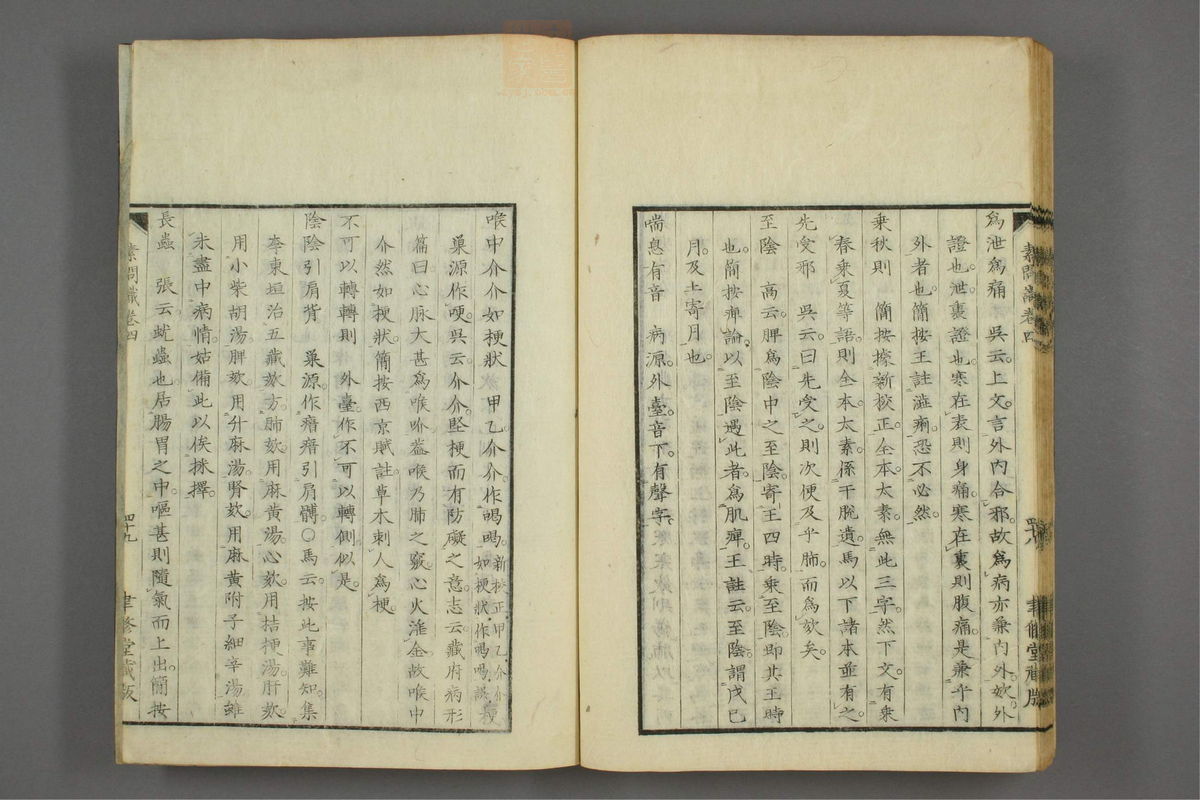 爲泄爲痛　吳云上文言外内合邪故爲病亦兼内外欬外
證也泄裏證也寒在表則身痛寒在裏則腹痛是兼乎内
外者也簡按王註澁痢恐不必然
乗秋則　簡按據新挍正全本太素無此三字然下文有乗
春乗夏等語則全本太素係干脫遺馬以下諸本並有之
先受邪　吳云曰先受之則次便及乎肺而爲欬矣
至陰　高云脾爲陰中之至陰寄王四時乗至陰即其王時
也簡按痺論以至陰遇此者爲肌痺王註云至陰謂戊巳
月及土寄月也
喘息有音　病源外臺音下有聲字
素問識卷四
聿修堂藏版
喉中介介如梗狀　甲乙介介作喝喝新挍正甲乙介介如梗狀作喝喝
巢源作哽吳云介介堅梗而有防礙之意志云藏府病形
篇曰心脉大甚爲喉吤蓋喉乃肺之竅心火淫金故喉中
介然如梗狀簡按西京賦註草木刺人爲梗
不可以轉轉則　外臺作不可以轉側似是
陰陰引肩背　巢源作瘖瘖引肩髆○馬云按此事難知集
李東垣治五藏欬方肺欬用麻黄湯心欬用桔梗湯肝欬
用小柴胡湯脾欬用升麻湯腎欬用麻黄附子細辛湯雖
未盡中病情姑備此以俟採擇
長蟲　張云蚘蟲也居腸胃之中嘔甚則隨氣而上出簡按
素問識卷四
四十九
聿修堂藏版